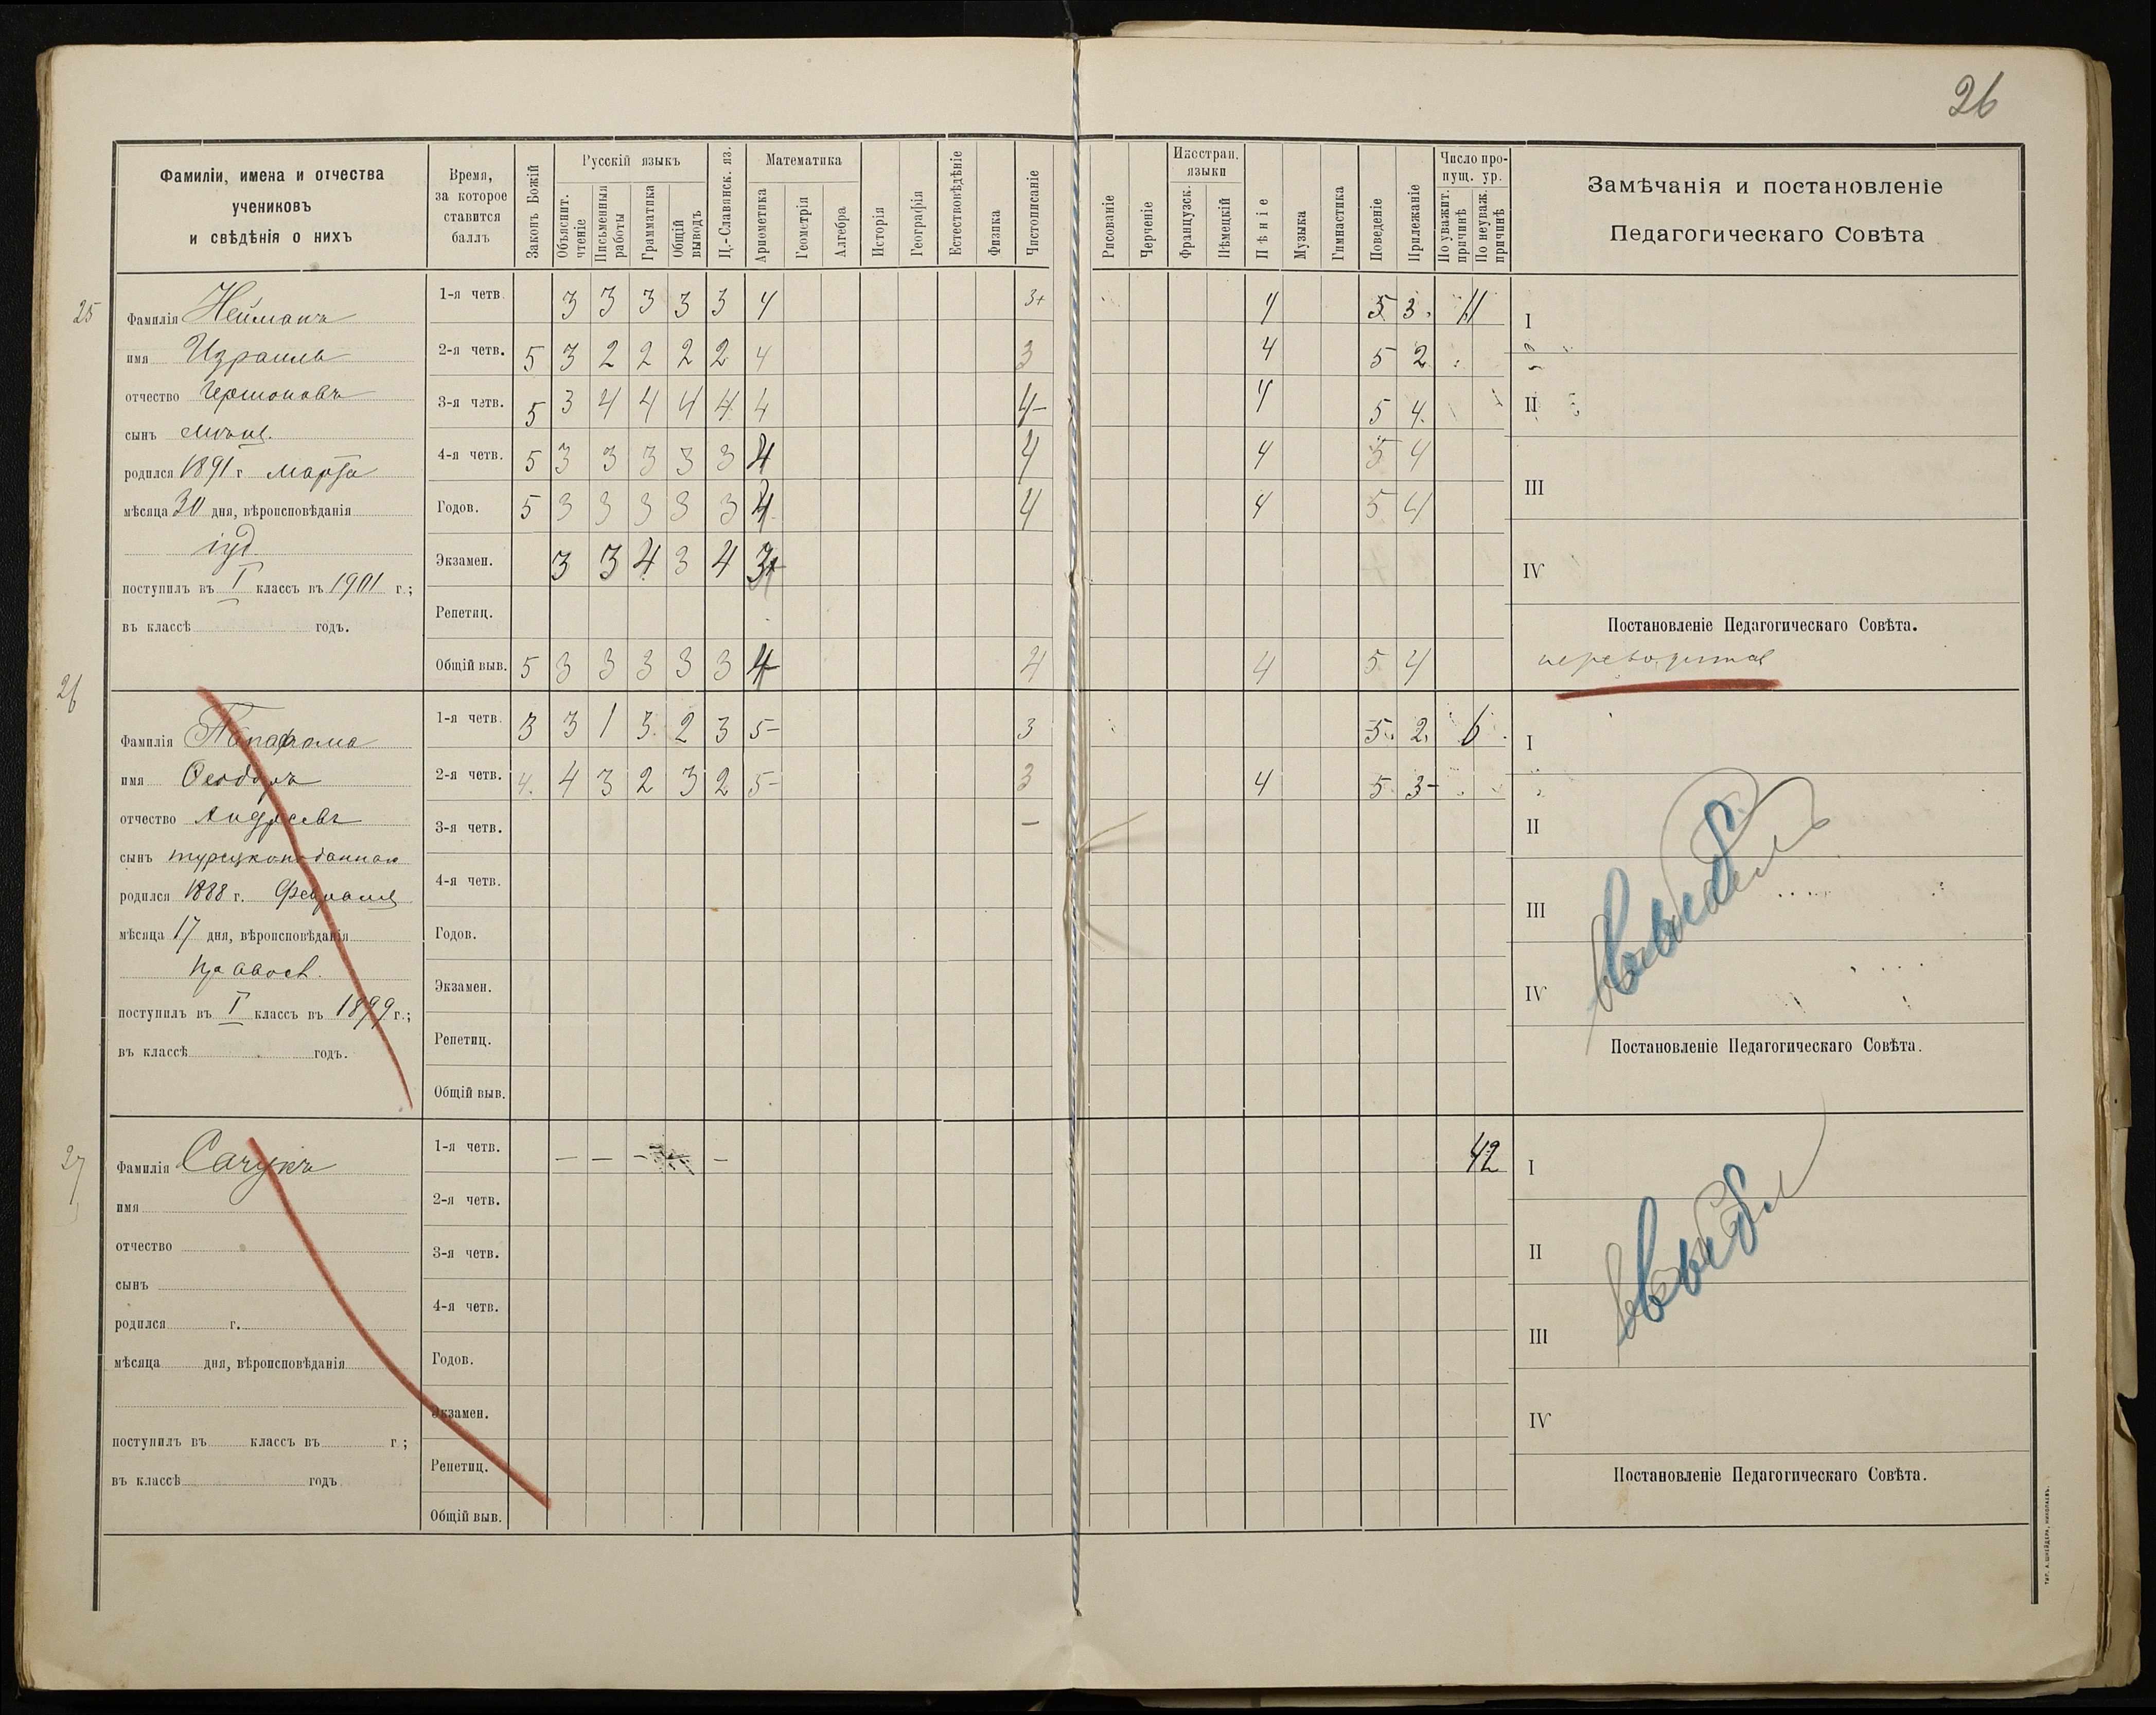 26
Фамиліи, имена и отчества
учениковъ
и свѣдѣнія о нихъ
Время,
за которое
ставится
баллъ
Законъ Божій
Русскій языкъ
Объяснит. чтеніе
Письменныя работы
Грамматика
Общій выводъ
Ц.-Славянск. яз.
Математика
Ариѳметика
Геометрія
Алгебра
Исторія
Географія
Естествовѣдѣніе
Физика
Чистописаніе
Рисованіе
Черченіе
Иностран. языки
Французск.
Нѣмецкій
Пѣніе
Музыка
Гимнастика
Поведеніе
Прилежаніе
Число пропущ. ур.
По уважит. причинѣ
По неуваж. причинѣ
Замѣчанія и постановленіе
Педагогическаго Совѣта
25
Фамилія Нейманъ
имя Израиль
отчество Гершоновъ
сынъ мѣщ.
родился 1891 г марта
мѣсяца 30 дня, вѣроисповѣданія
іуд.
поступилъ въ I классъ въ 1901 г.;
въ классѣ годъ.
1-я четв 3 3 3 3 3 4 3+ 4 5 3. 11
2-я четв. 5 3 2 2 2 2 4 3 4 5 2
3-я четв. 5 3 4 4 4 4 4 4- 4 5 4.
4-я четв. 5 3 3 3 3 3 4 4 4 5 4
Годов. 5 3 3 3 3 3 4 4 4 5 4
Экзамен. 3 3 4 3 4 3+
Репетиц.
Общій выв. 5 3 3 3 3 3 4 4 4 5 4
I
II
III
IV
Постановленіе Педагогическаго Совѣта.
переводится
26
Фамилія
имя Ѳеодоръ
отчество Андреевъ
сынъ турецкоподаннаго
родился 1888 г. Февраля
мѣсяца 17 дня, вѣроисповѣданія
правосл.
поступилъ въ I классъ въ 1899 г.;
въ классѣ годъ.
1-я четв. 3 3 1 3. 2 3 5- 3 5. 2. 6
2-я четв. 4. 4 3 2 3 2 5- 3 4 5. 3-
3-я четв. —
4-я четв.
Годов.
Экзамен.
Репетиц.
Общій выв.
I
II
III
IV
выбыл
Постановленіе Педагогическаго Совѣта.
27
Фамилія Сачукъ
имя
отчество
сынъ
родился г.
мѣсяца дня, вѣроисповѣданія
поступилъ въ классъ въ г.;
въ классѣ годъ
1-я четв. — — — — 42
2-я четв.
3-я четв.
4-я четв.
Годов.
Экзамен.
Репетиц.
Общій выв.
I
II
III
IV
выбыл
Постановленіе Педагогическаго Совѣта.
ТИП. А. ШНЕЙДЕРА, НИКОЛАЕВЪ.